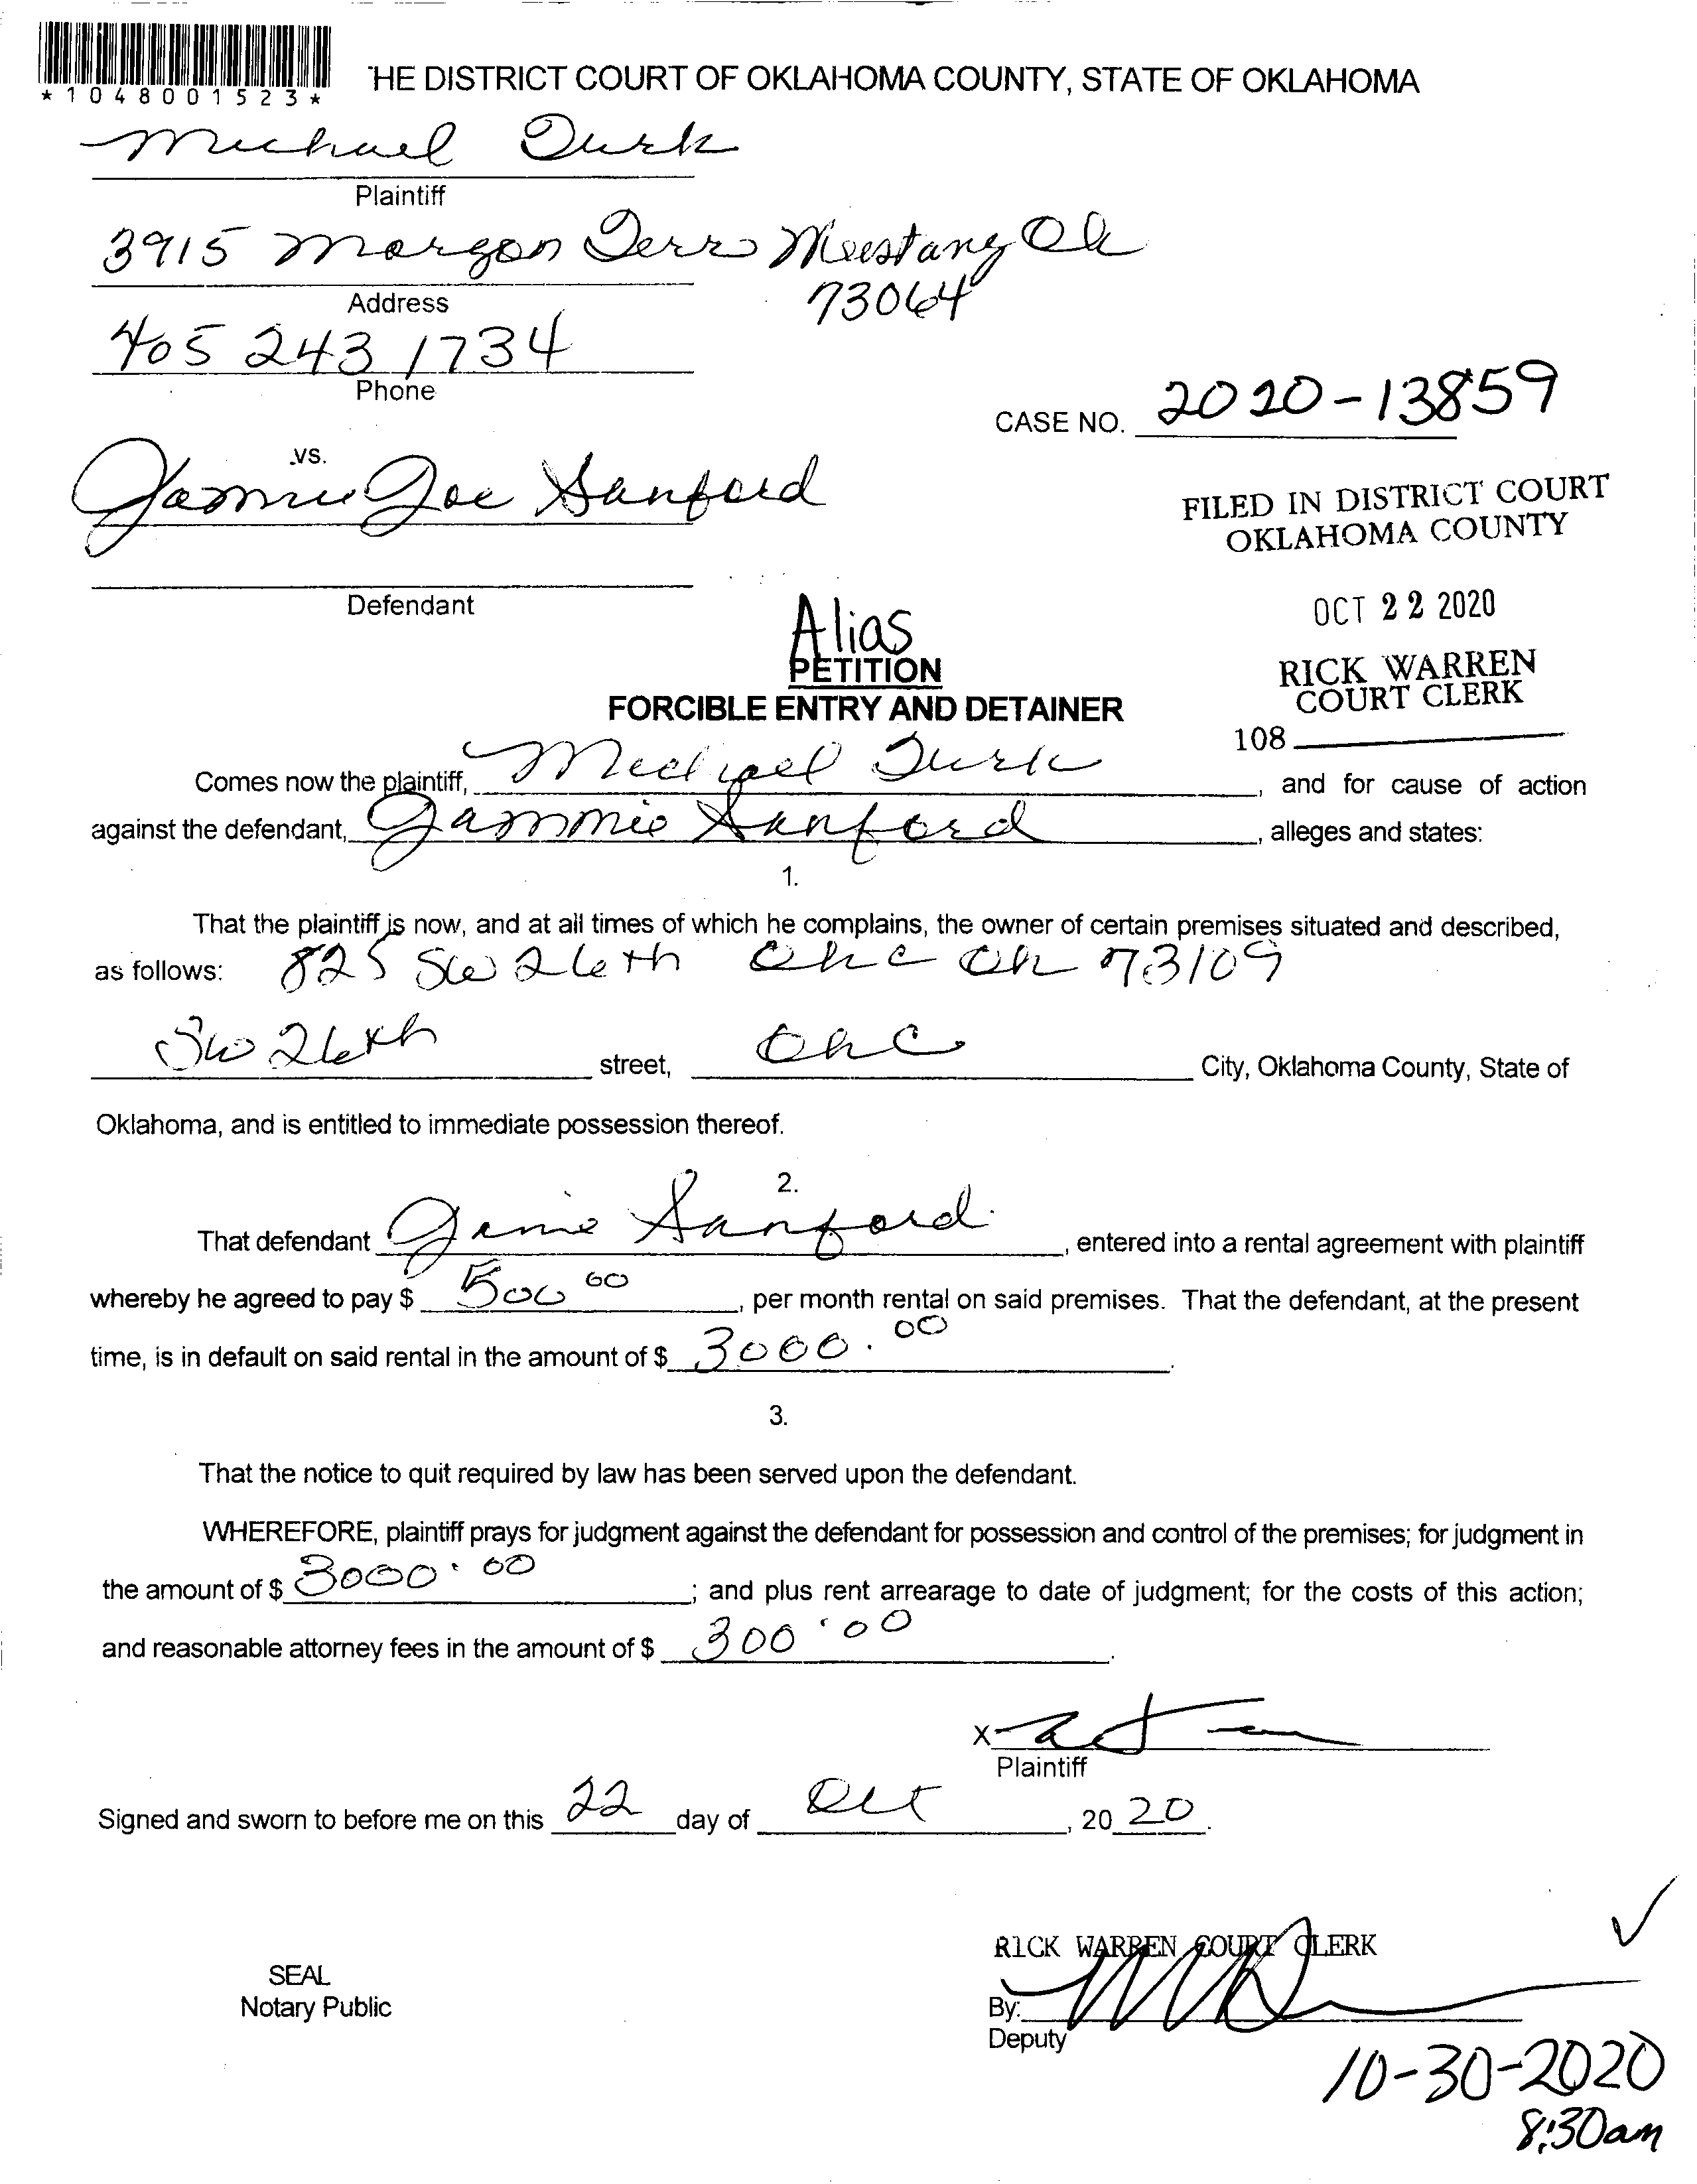 *1048001523*
HE DISTRICT COURT OF OKLAHOMA COUNTY, STATE OF OKLAHOMA
Michael Turk
Plaintiff
3915 Morgan Terr Mustang Ok
73064
Address
405 243 1734
Phone
CASE NO. 2020-13859
.vs.
Jammie Joe Sanford
FILED IN DISTRICT COURT
OKLAHOMA COUNTY
Defendant
OCT 22 2020
Alias
PETITION
RICK WARREN
COURT CLERK
FORCIBLE ENTRY AND DETAINER
108
Comes now the plaintiff, Michael Turk, and for cause of action
against the defendant, Jammie Sanford, alleges and states:
1.
That the plaintiff is now, and at all times of which he complains, the owner of certain premises situated and described,
as follows: 825 SW 26th Okc Ok 73109
SW 26th street, Okc City, Oklahoma County, State of
Oklahoma, and is entitled to immediate possession thereof.
2.
That defendant Jamie Sanford, entered into a rental agreement with plaintiff
whereby he agreed to pay $ 500 00, per month rental on said premises. That the defendant, at the present
time, is in default on said rental in the amount of $ 3000.00.
3.
That the notice to quit required by law has been served upon the defendant.
WHEREFORE, plaintiff prays for judgment against the defendant for possession and control of the premises; for judgment in
the amount of $ 3000.00; and plus rent arrearage to date of judgment; for the costs of this action;
and reasonable attorney fees in the amount of $ 300.00.
X
Plaintiff
Signed and sworn to before me on this 22 day of Oct, 20 20.
RICK WARREN COURT CLERK
SEAL
Notary Public
By:
Deputy
10-30-2020
8:30am